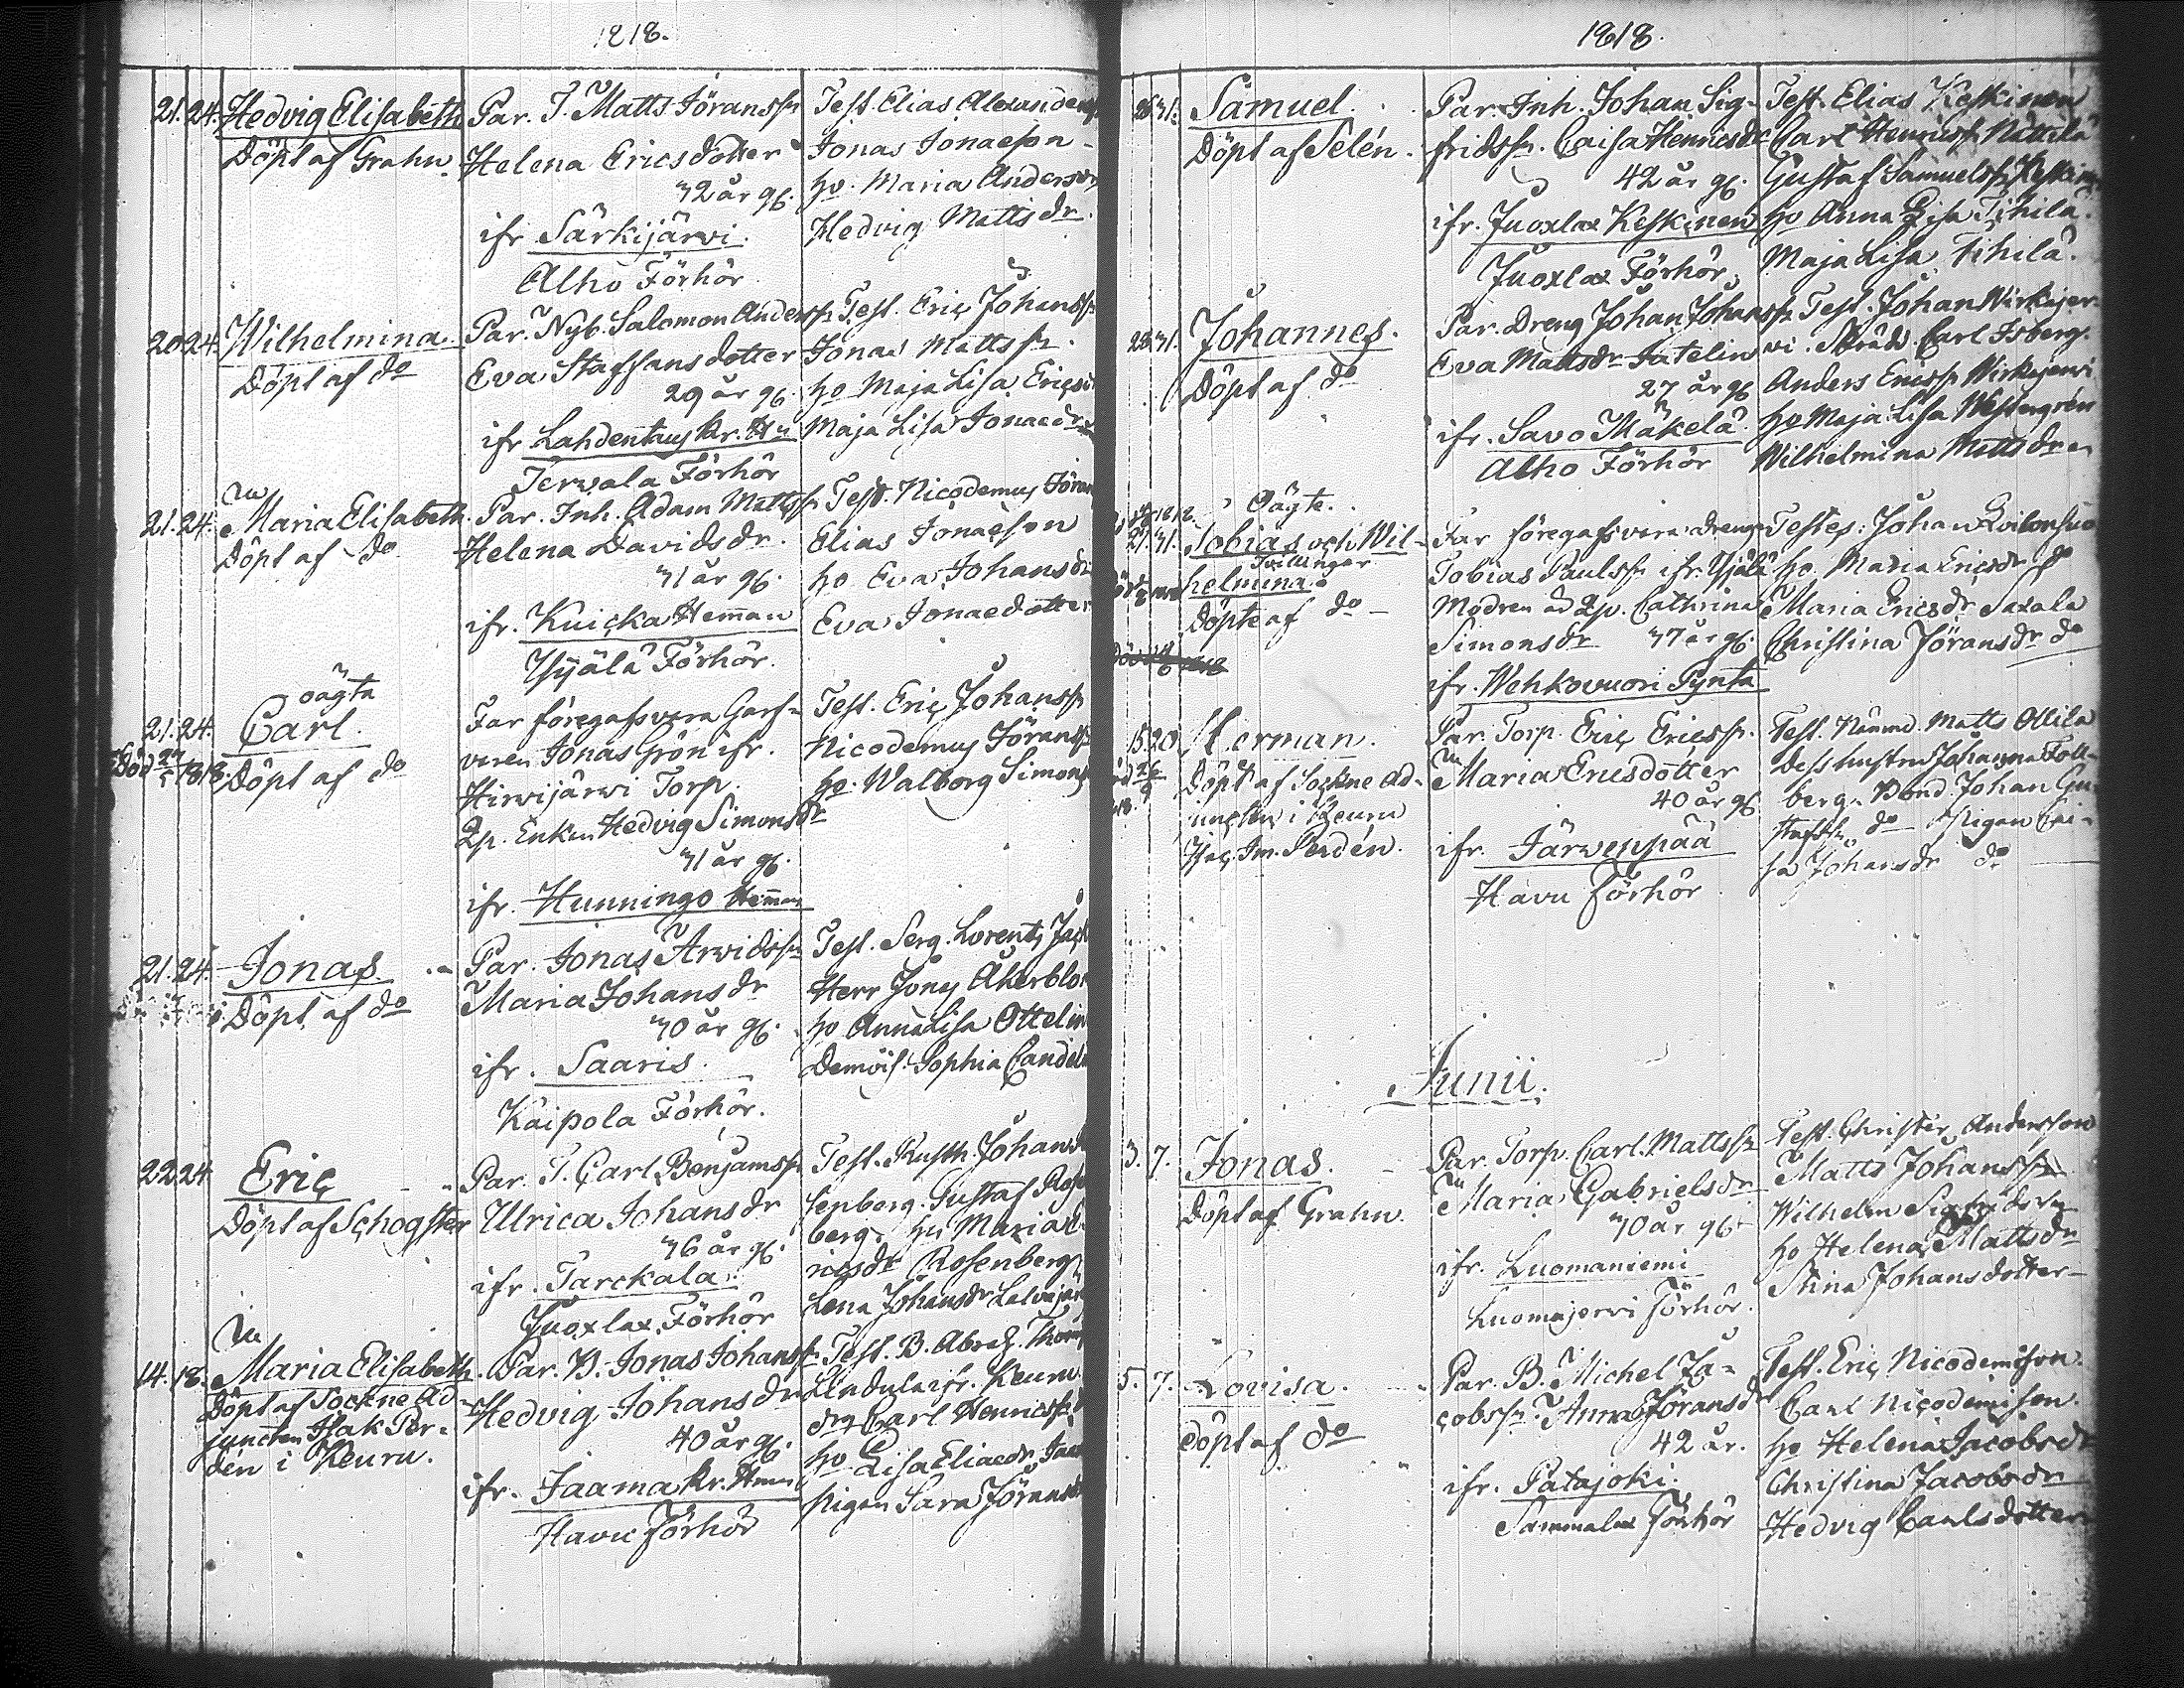 1818.
21. 24. Hedvig Elisabeth
Döpt af Grahn.
Par. T. Matts Jöranss:n
Helena Ericsdotter
32 år gl.
ifr Särkijärvi.
Alho Förhör
Test. Elias Alexanders
Jonas Jonaeson
ho. Maria Anders
Hedvig Mattsdr.
20. 24. Wilhelmina.
Döpt af do
Par. Nyb. Salomon Anderss:n
Eva Staffansdotter
29 år gl.
ifr Lahdentaus kr. Hn
Tervala Förhör
Test. Eric Johanss:n
Jonas Mattss:n.
ho Maja Lisa Erics
Maja Lisa Jonaedr
21. 24. Maria Elisabeth.
Döpt af do
Par. Inh. Adam Mattss:n
Helena Davidsdr.
31 år gl.
ifr. Kuicka Hemman
Yijälä Förhör.
Test. Nicodemus Jöran
Elias Jonaeson
ho Eva Johansdr
Eva Jonaedotter
oägta
21. 24. Carl.
Död 1818. Döpt af do
Far föregafs vara Garf-
varen Jonas Grön ifr.
Hirvijärvi Torp.
Qp. Enkan Hedvig Simonsdr
31 år gl.
ifr. Hunningo Hemman
Test. Eric Johanss:n
Nicodemus Jöranss
ho. Walborg Simons
21. 24. Jonas
Döpt af do
Par. Jonas Arvidss:n
Maria Johansdr
30 år gl.
ifr. Saaris.
Kaipola Förhör.
Test. Serg. Lorentz
Herr Jony Åkerblom
ho Anna Lisa Ottelin
Demois. Sophia Candelin
22. 24 Eric
Döpt af Schogster
Par. T. Carl Benjamss:n
Ulrica Johansdr
36 år gl.
ifr. Tarckala.
Juoxlax Förhör
Test. Rusth. Johan
senberg. Gustaf Rosen
berg. ho Maria E
ricsdr Rosenberg
Lena Johansdr
14. 18. Maria Elisabeth.
Döpt af Sockne Ad-
juncten Isak Per-
den i Keuru.
Par. B. Jonas Johanss:n
Hedvig Johansdr
40 år gl.
ifr. Jaama kr. Hman
Havu Förhör
Test. B. Abrah. Thoms
Lindula ifr. Keuru
drg Carl Henricss:n
ho Lisa Eliaedr
Pigan Sara Jöransdr
1818.
26. 31. Samuel.
Döpt af Selén.
Par. Inh. Johan Sig-
fridss:n. Caisa Henricsdr
42 år gl.
ifr. Juoxlax Keskinen
Juoxlax Förhör.
Test. Elias Keskinen
Carl Henricss:n Nättilä
Gustaf Samuelss:n Keskin
ho Anna Lisa Tihilä.
Maja Lisa Tihilä.
28. 31. Johannes.
Döpt af do
Par. Dreng Johan Johanss:n
Eva Mattsdr Jatelin
27 år gl.
ifr. Savo Mäkelä.
Alho Förhör
Test. Johan Wirkejer
vi. Skrädd. Carl Isberg.
Anders Ericss:n Wirkejervi
ho Maja Lisa Westergrén
Wilhelmina Mattsdr
Oägte.
27. 31. Tobias och Wil-
Tvillingar
helmina.
Döpte af do
Far föregafs vara drengen
Tobias Paulss:n ifr. Yijälä
Modren ad Qp. Cathrina
Simonsdr 37 år gl.
ifr. Wehkovuori Pynta
Testes: Johan
ho. Maria Ericsdr do
Maria Ericsdr Saxala
Christina Jöransdr do
15. 20. Herman.
Döpt af Sockne Ad-
juncten i Keuru
Isac Im. Perdén.
Par. Torp. Eric Ericss:n.
Maria Ericsdotter
40 år gl
ifr. Järvenpää
Havu förhör
Test. Nämnd. Matts Ollila
Dess hustru Johanna Foll-
berg. Bond. Johan Gu-
stafss:n do Pigan Cai-
sa Johansdr do
Junii.
3. 7. Jonas.
Döpt af Grahn.
Par. Torp. Carl Mattss:n
Maria Gabrielsdr
30 år gl.
ifr. Luomaniemi
Luomajervi Förhör.
Test. Christer Andersson
Matts Johanss:n
Wilhelm
ho Helena Mattsdr
Stina Johansdotter
5. 7. Lovisa.
döpt af do
Par. B. Michel Ja-
cobss:n. Anna Jöransdr
42 år.
ifr. Patajoki.
Sammalax Förhör
Test. Eric Nicodemison.
Carl Nicodemison.
ho Helena Jacobsdr
Christina Jacobsdr
Hedvig Carlsdotter